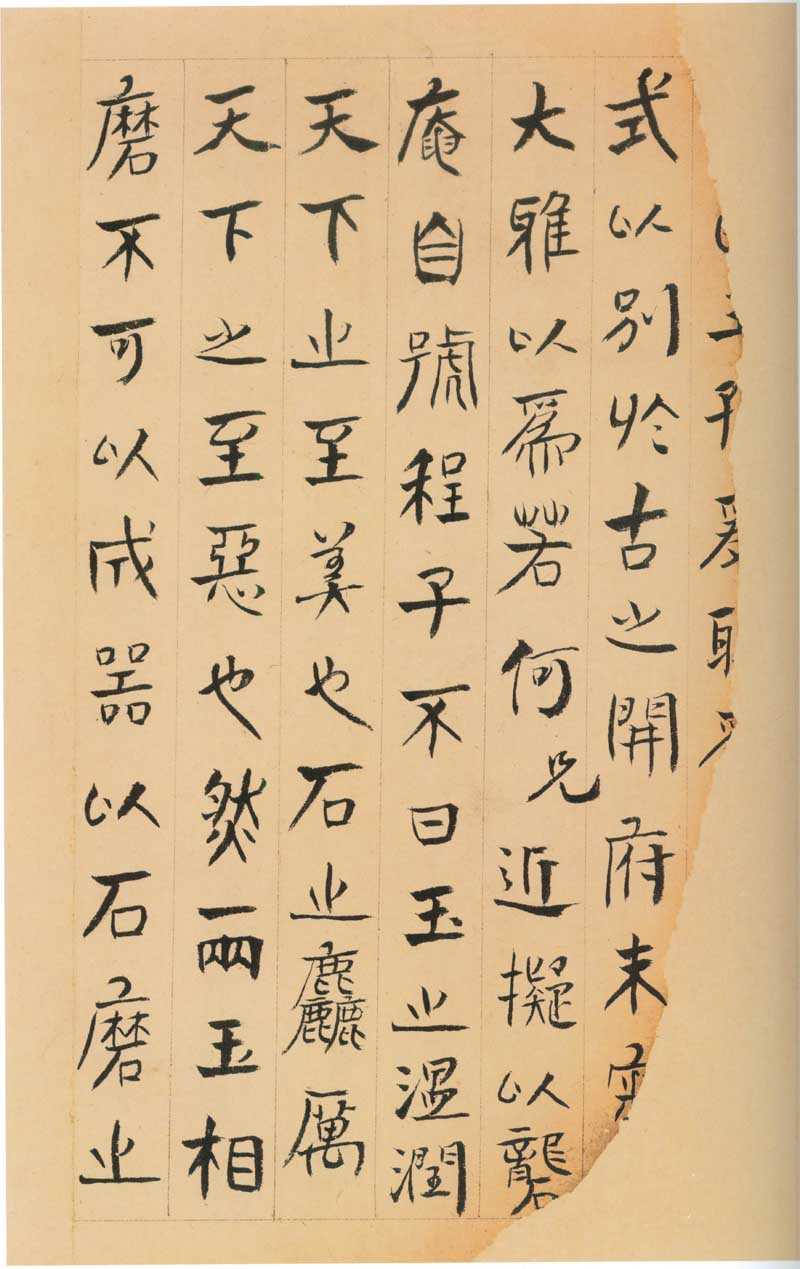 式以別於古之開府末
大雅以為若何兄近擬以礱
庵自號程子不曰玉之溫潤
天下之至美也石之麤厲
天下之至惡也然兩玉相
磨不可以成器以石磨之